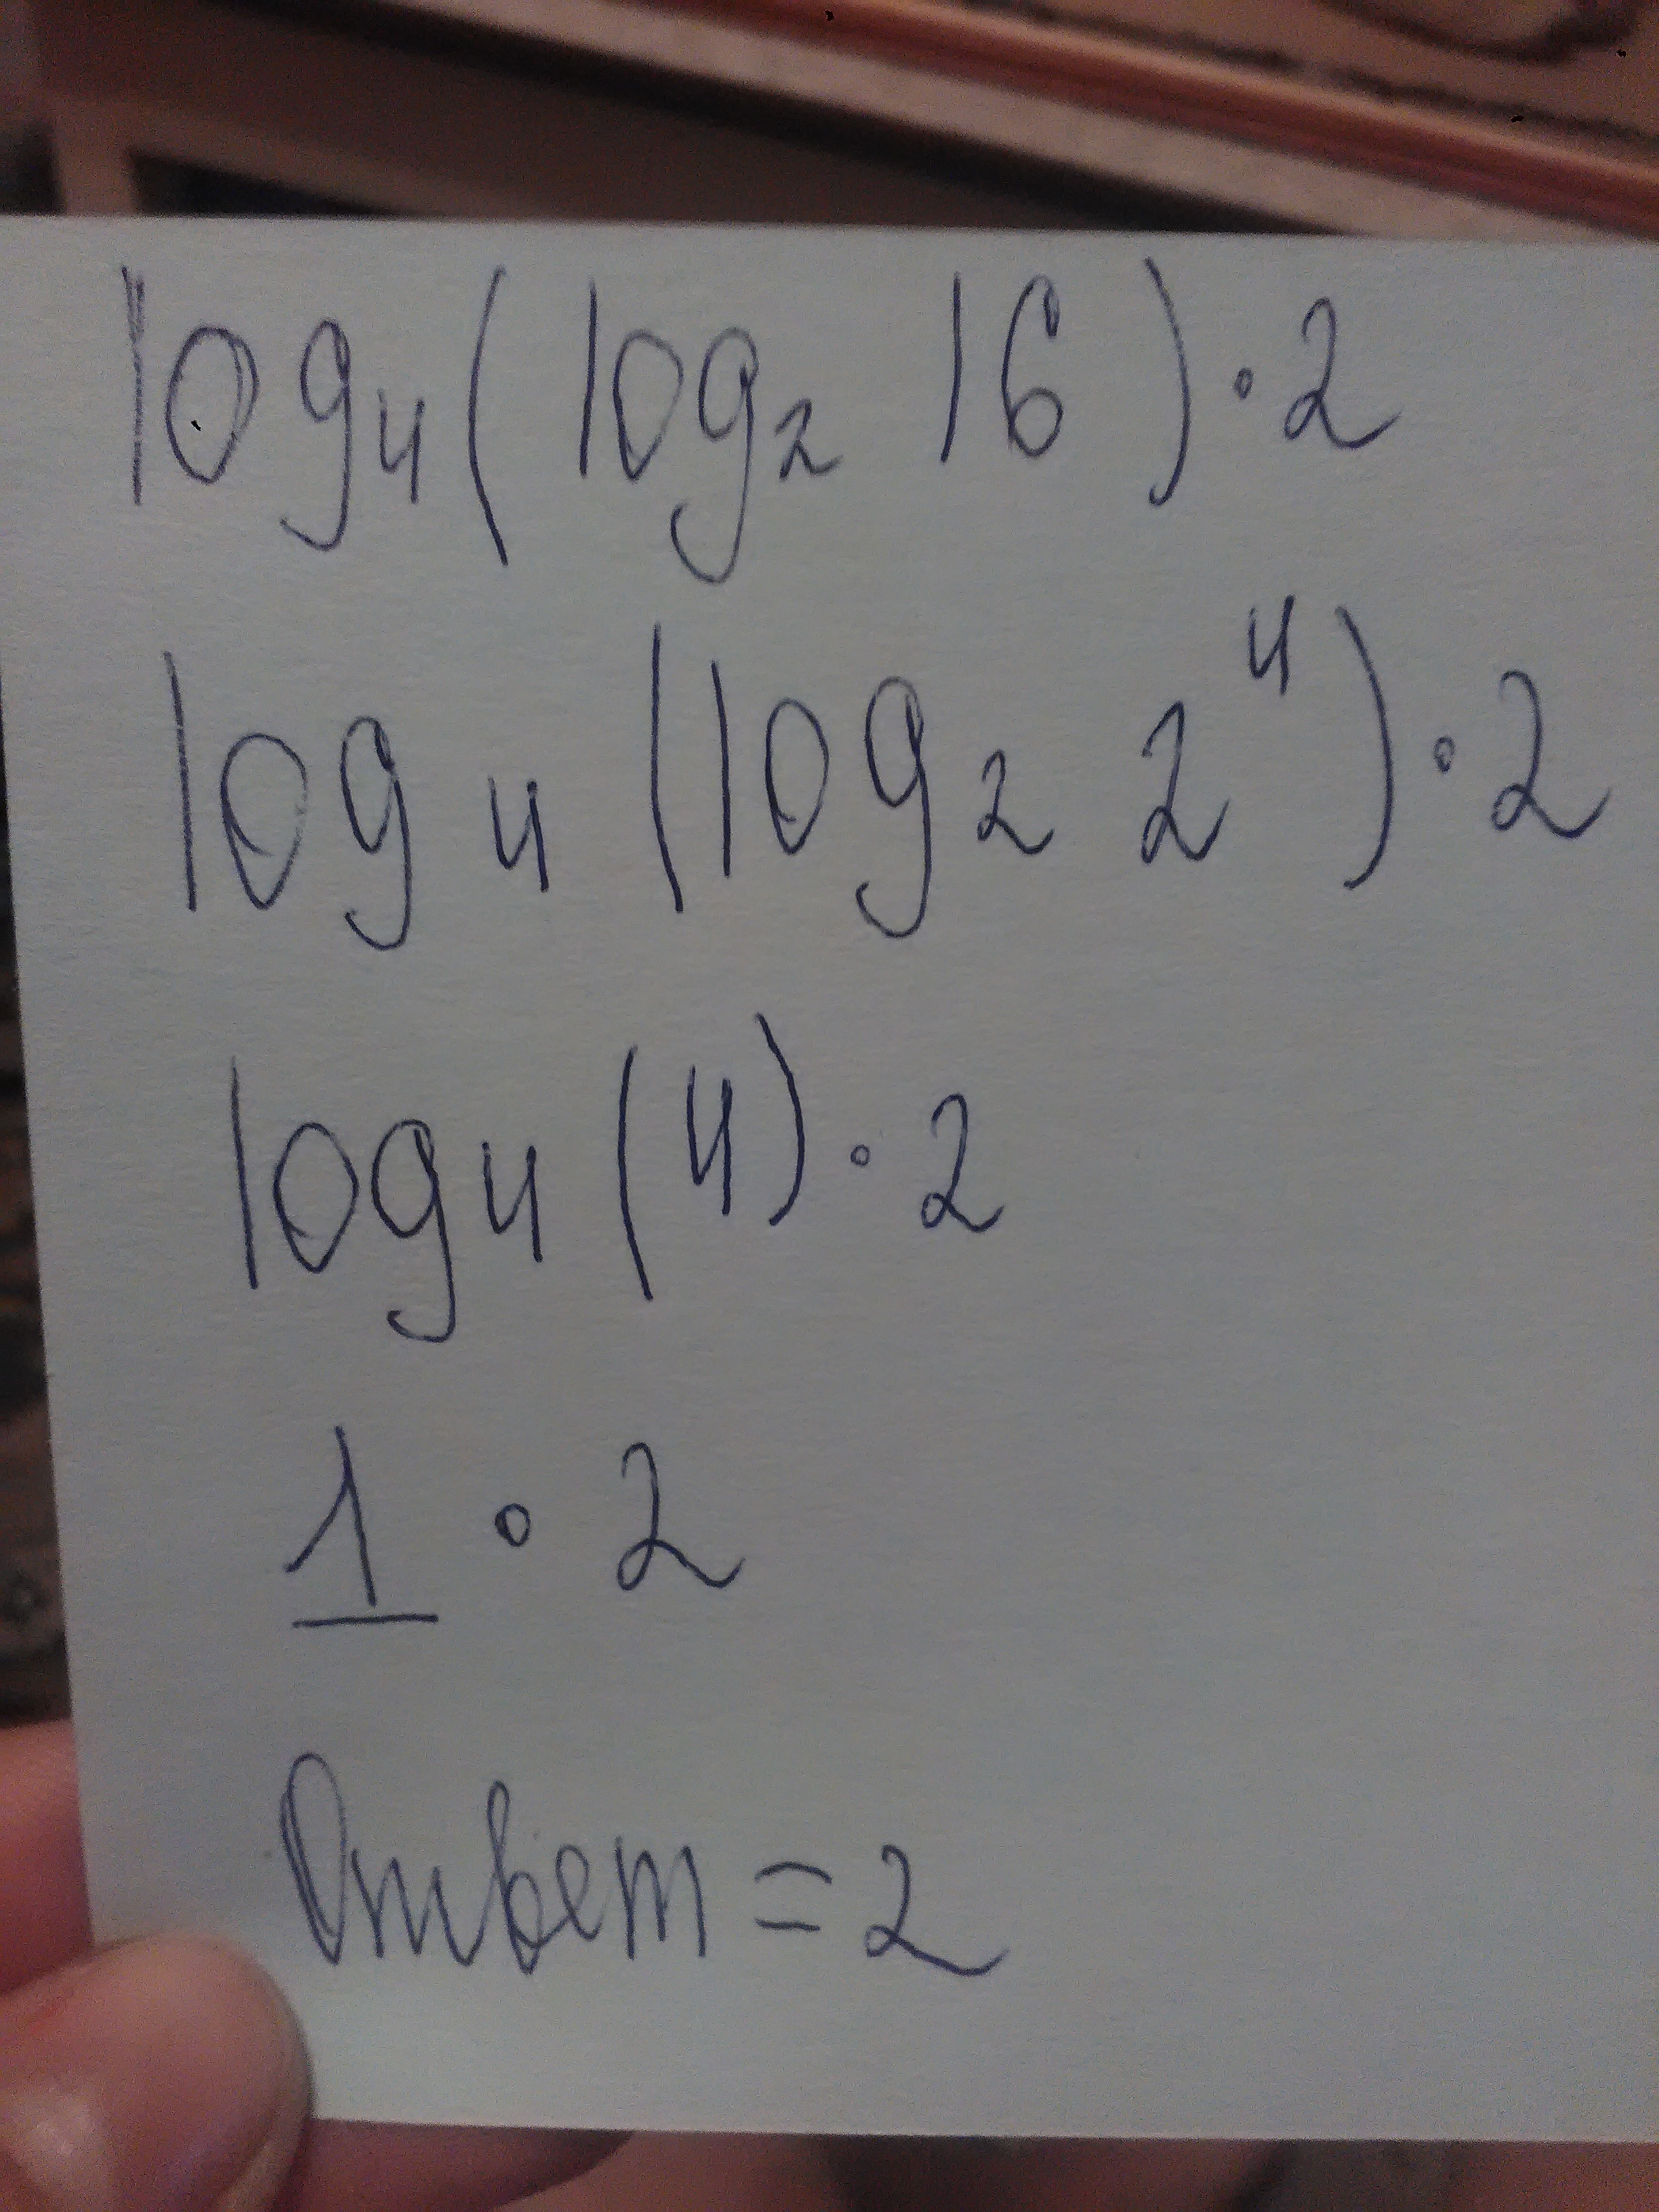 log₄(log₂ 16)·2
log₄(log₂ 2⁴)·2
log₄(4)·2
1·2
Ответ=2